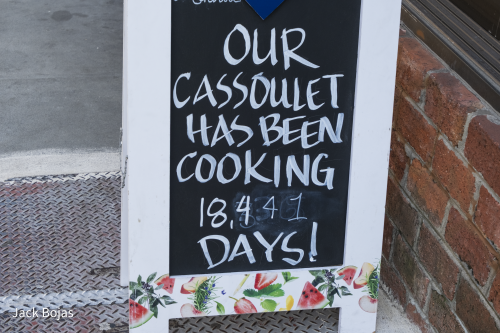 OUR
CASSOULET
HAS BEEN
COOKING
18,441
DAYS!
Jack Bojas